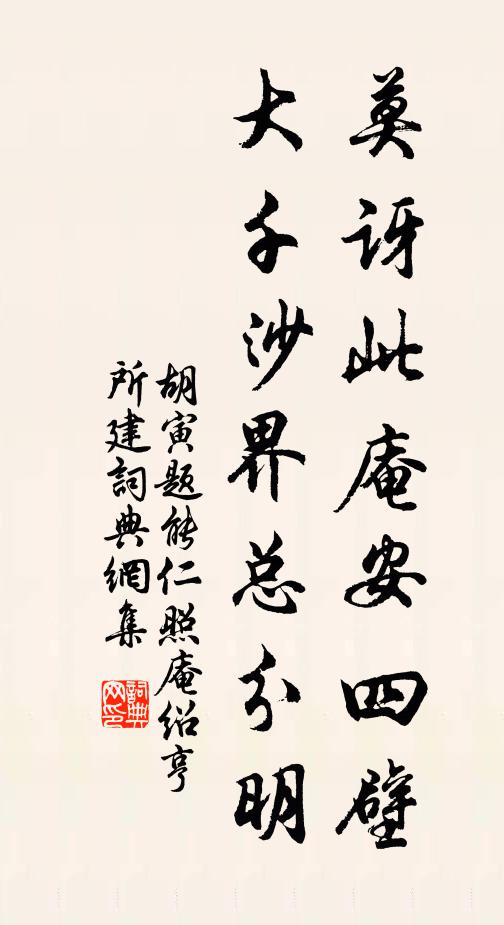 莫訝此庵安四壁
大千沙界总分明
胡寅题能仁照庵绍亨
所建詞典網集
詞典
网印